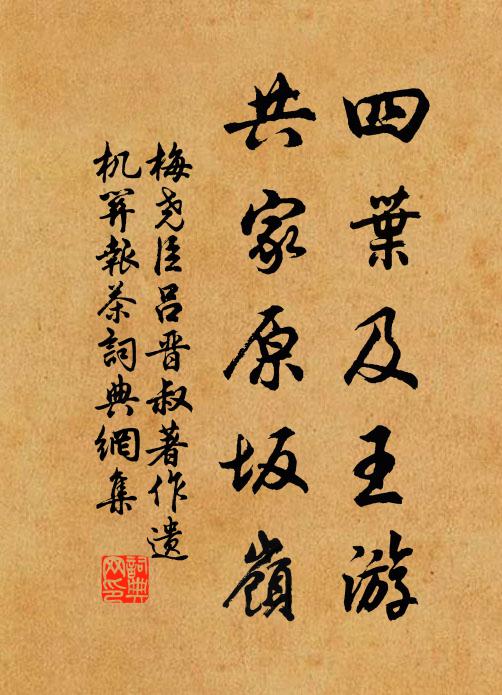 四葉及王游
共家原坂嶺
梅尧臣吕晋叔著作遗
机笄報茶詞典網集
詞典网印